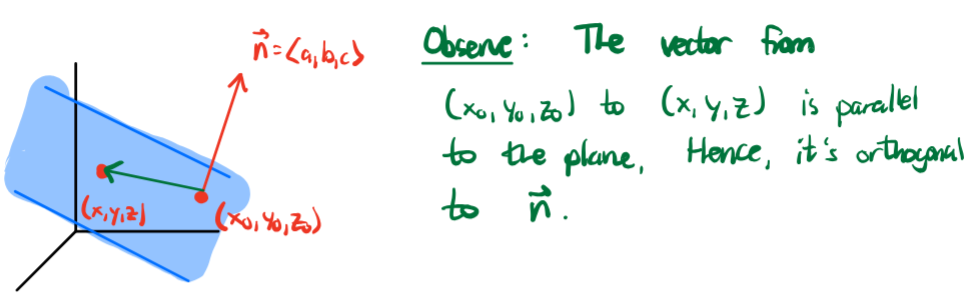 n⃗ = ⟨a,b,c⟩
(x,y,z)
(x₀,y₀,z₀)
Observe: The vector from
(x₀,y₀,z₀) to (x,y,z) is parallel
to the plane, Hence, it's orthogonal
to n⃗.